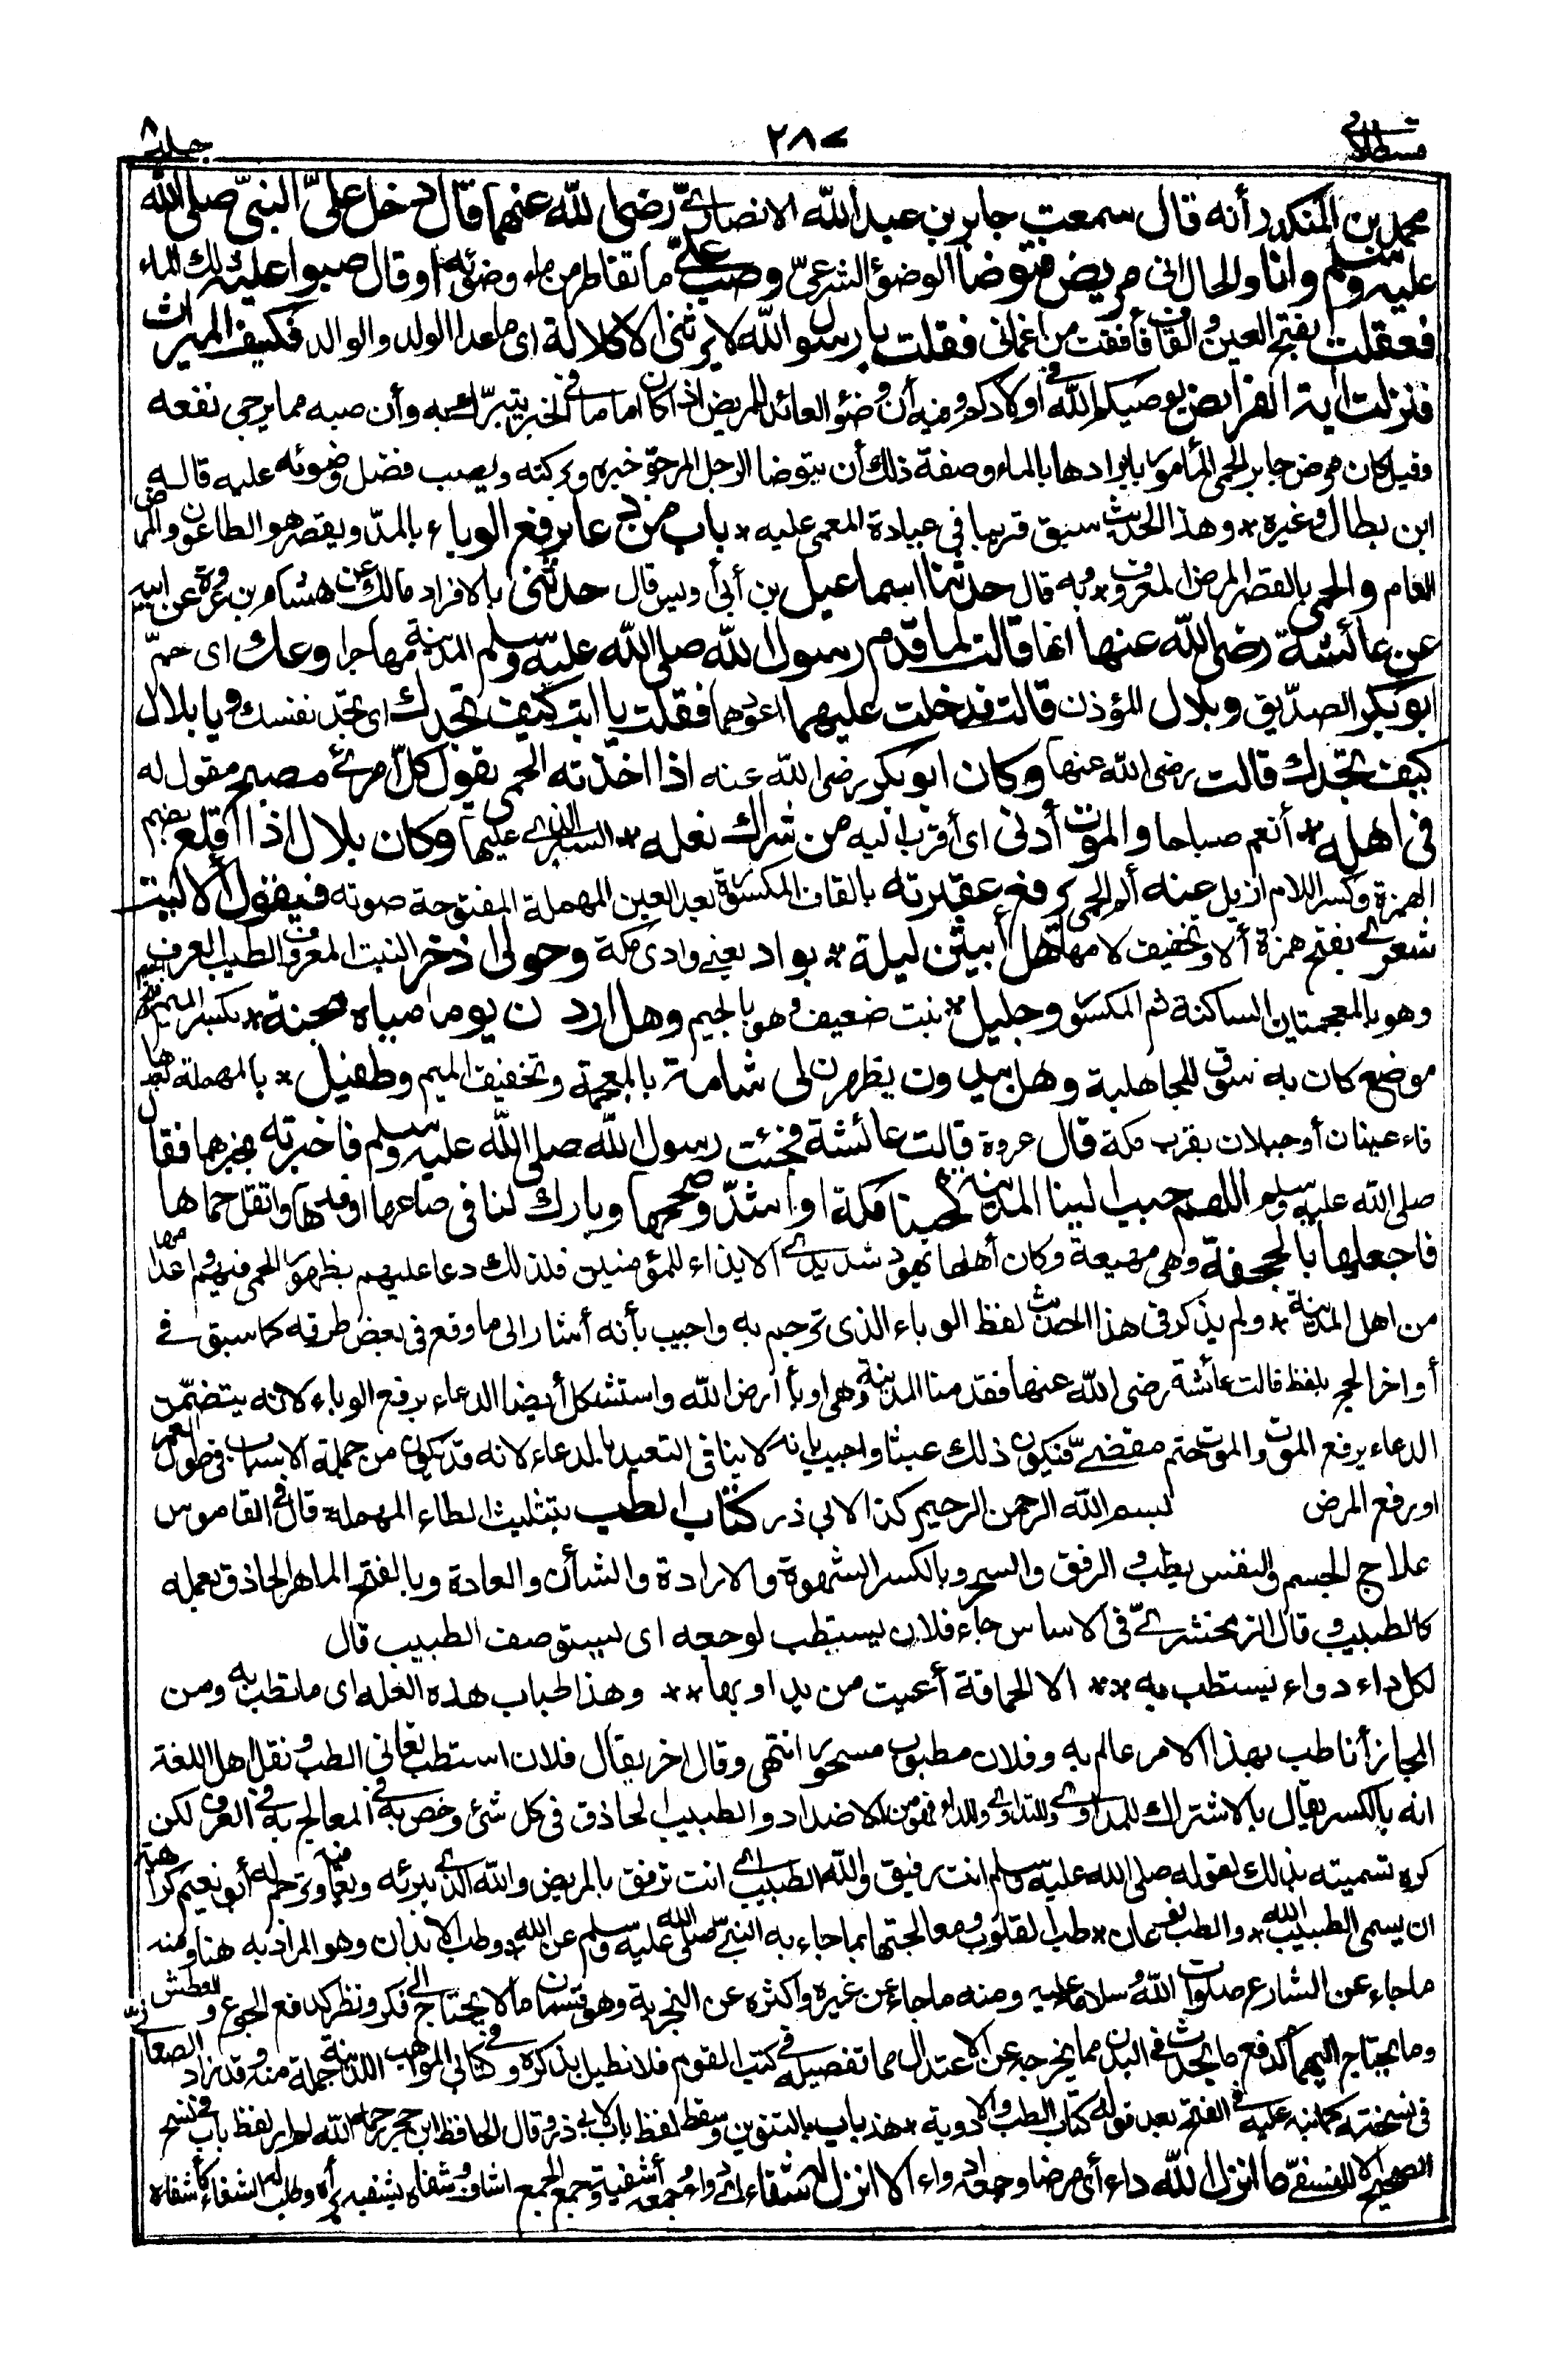 قسطلانی
٢٨٧
جلد ٨
محمد بن المنكدر أنه قال سمعت جابر بن عبد الله الانصاري رضى الله عنهما قال دخل علىّ النبىّ صلى الله
عليه وسلم وانا والحال انى مريض فتوضأ الوضوء الشرعىّ وصبّ علىّ ما تقاطر من ماء وضوئه أو قال صبوا عليه ذلك الماء
فعقلت بفتح العين والقاف فأفقت من اغمائى فقلت يا رسول الله لا يرثنى الا كلالة اى ما عدا الولد والوالد فكيف الميراث
فنزلت آية الفرائض يوصيكم الله فى اولادكم وفيه أن وضوء العائد للمريض اذا كان اماما فى الخير يتبرّك به وأن صبه مما يرجى نفعه
وقيل كان مرض جابر الحمى المأمور بابرادها بالماء وصفة ذلك أن يتوضأ الرجل المرجو خيره وبركته ويصب فضل وضوئه عليه قاله
ابن بطال وغيره * وهذا الحديث سبق قريبا فى عيادة المغمى عليه * باب من دعا برفع الوباء بالمدّ ويقصر هو الطاعون والمرض
العام والحمى بالقصر المرض المعروف * وبه قال حدثنا اسماعيل بن أبى أويس قال حدثنى بالافراد مالك عن هشام بن عروة عن ابيه
عن عائشة رضى الله عنها انها قالت لما قدم رسول الله صلى الله عليه وسلم المدينة مهاجرا وعك اى حمّ
ابو بكر الصدّيق وبلال المؤذن قالت فدخلت عليهما اعودهما فقلت يا ابت كيف تجدك اى تجد نفسك ويا بلال
كيف تجدك قالت رضى الله عنها وكان ابو بكر رضى الله عنه اذا اخذته الحمى يقول كل امرئ مصبح مقول له
فى اهله * أنعم صباحا والموت أدنى اى أقرب اليه من شراك نعله * السائر علیها وكان بلال اذا أقلع بضم
الهمزة وكسر اللام ازيل عنه ألم الحمى يرفع عقيرته بالقاف المكسورة بعد العين المهملة المفتوحة صوته فيقول ألا ليت
شعرى بفتح همزة ألا وتخفيف لامها هل أبيتن ليلة * بواد يعنى وادى مكة وحولى اذخر النبت المعروف الطيب العرف
وهو بالمعجمتين الساكنة ثم المكسورة وجليل * نبت ضعيف وهو بالجيم وهل اردن يوما مياه مجنة * بكسر الميم
موضع كان به سوق للجاهلية وهل يبدون يظهرن لى شامة بالمعجمة وتخفيف الميم وطفيل * بالمهملة بعدها
فاء عينان أو جبلان بقرب مكة قال عروة قالت عائشة فجئت رسول الله صلى الله عليه وسلم فاخبرته بخبرهما فقال
صلى الله عليه وسلم اللهم حبب الينا المدينة كحبنا مكة او اشدّ وصححها وبارك لنا فى صاعها ومدها وانقل حماها
فاجعلها بالجحفة وهى مهيعة وكان أهلها يهود شديدى الايذاء للمؤمنين فلذلك دعا عليهم بظهور الحمى فيهم واعدامها
من اهل المدينة * ولم يذكر فى هذا الحديث لفظ الوباء الذى ترجم به واجيب بأنه أشار الى ما وقع فى بعض طرقه كما سبق فى
أواخر الحج بلفظ قالت عائشة رضى الله عنها فقدمنا المدينة وهى اوبأ أرض الله واستشكل أيضا الدعاء برفع الوباء لانه يتضمّن
الدعاء برفع الموت والموت حتم مقضىّ فيكون ذلك عبثا واجيب بانه لا ينافى التعبد بالدعاء لانه قد يكون من جملة الاسباب فى طول العمر
او برفع المرض بسم الله الرحمن الرحيم كذا لابى ذر كتاب الطب بتثليث الطاء المهملة قال فى القاموس
علاج الجسم والنفس يطب والرفق والسحر وبالكسر الشهوة والارادة والشأن والعادة وبالفتح الماهر الحاذق بعمله
كالطبيب وقال الزمخشرىّ فى الاساس جاء فلان يستطب لوجعه اى يستوصف الطبيب قال
لكل داء دواء يستطب به ** الا الحماقة أعيت من يداويها ** وهذا طباب هذه العلة اى ما تطب به ومن
المجاز أنا طب بهذا الامر عالم به وفلان مطبوب مسحور انتهى وقال اخر يقال فلان استطب تعانى الطب ونقل اهل اللغة
انه بالكسر يقال بالاشتراك للمداوى وللتداوى وللداء فهو من الاضداد والطبيب الحاذق فى كل شئ وخص به فى المعالج به فى العرف لكن
كره تسميته بذلك لقوله صلى الله عليه وسلم انت رفيق والله الطبيب اى انت ترفق بالمريض والله الذى يبرئه ويعافيه وترجم له أبو نعيم كراهية
ان يسمى الطبيب الله * والطب نوعان * طب القلوب ومعالجتها بما جاء به النبىّ صلى الله عليه وسلم عن الله * وطب الابدان وهو المراد به هنا ومنه
ما جاء عن الشارع صلوات الله وسلامه عليه ومنه ما جاء عن غيره واكثره عن التجربة وهو قسمان ما لا يحتاج الى فكر ونظر كدفع الجوع والعطش
وما يحتاج اليهما كدفع ما يحدث فى البدن مما يخرجه عن الاعتدال مما تفصيله فى كتب القوم فلا نطيل بذكره وفى كتابى المواهب اللدنية جملة منه وقد زاد الصغانىّ
فى نسخته كما نبه عليه فى الفتح بعد قوله كتاب الطب والادوية * هذا باب بالتنوين وسقط لفظ باب لابى ذر وقال الحافظ ابن حجر رحمه الله لم ار لفظ باب فى نسخ
الصحيح الا للنسفى ما انزل الله داء أى مرضا وجمعه ادواء الا انزل له شفاء اى دواء وجمعه أشفية وجمع الجمع اشاف وشفاه يشفيه برأه وطلب له الشفاء كأشفاه